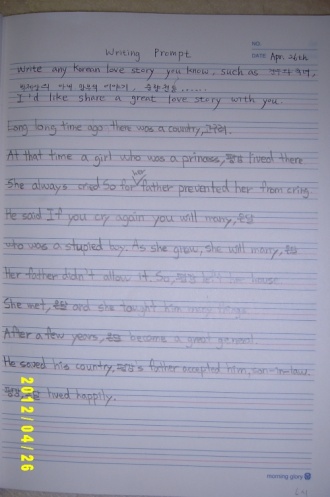 NO.
Writing Prompt
DATE Apr. 26th
Write any Korean love story you know, such as
I'd like share a great love story with you.
Long long time ago there was a country, 고구려.
At that time a girl who was a princess, 평강 lived there
her
She always cried So far father prevented her from cring.
He said If you cry again you will marry, 온달
who was a stupied boy. As she grew, she will marry, 온달
Her father didn't allow it. So, 평강 left her house
She met, 온달 and she taught him many things.
After a few years, 온달 become a great general.
He saved his country, 평강's father accepted him, son-in-law.
평강, 온달 lived happily.
2012/04/26
morning glory